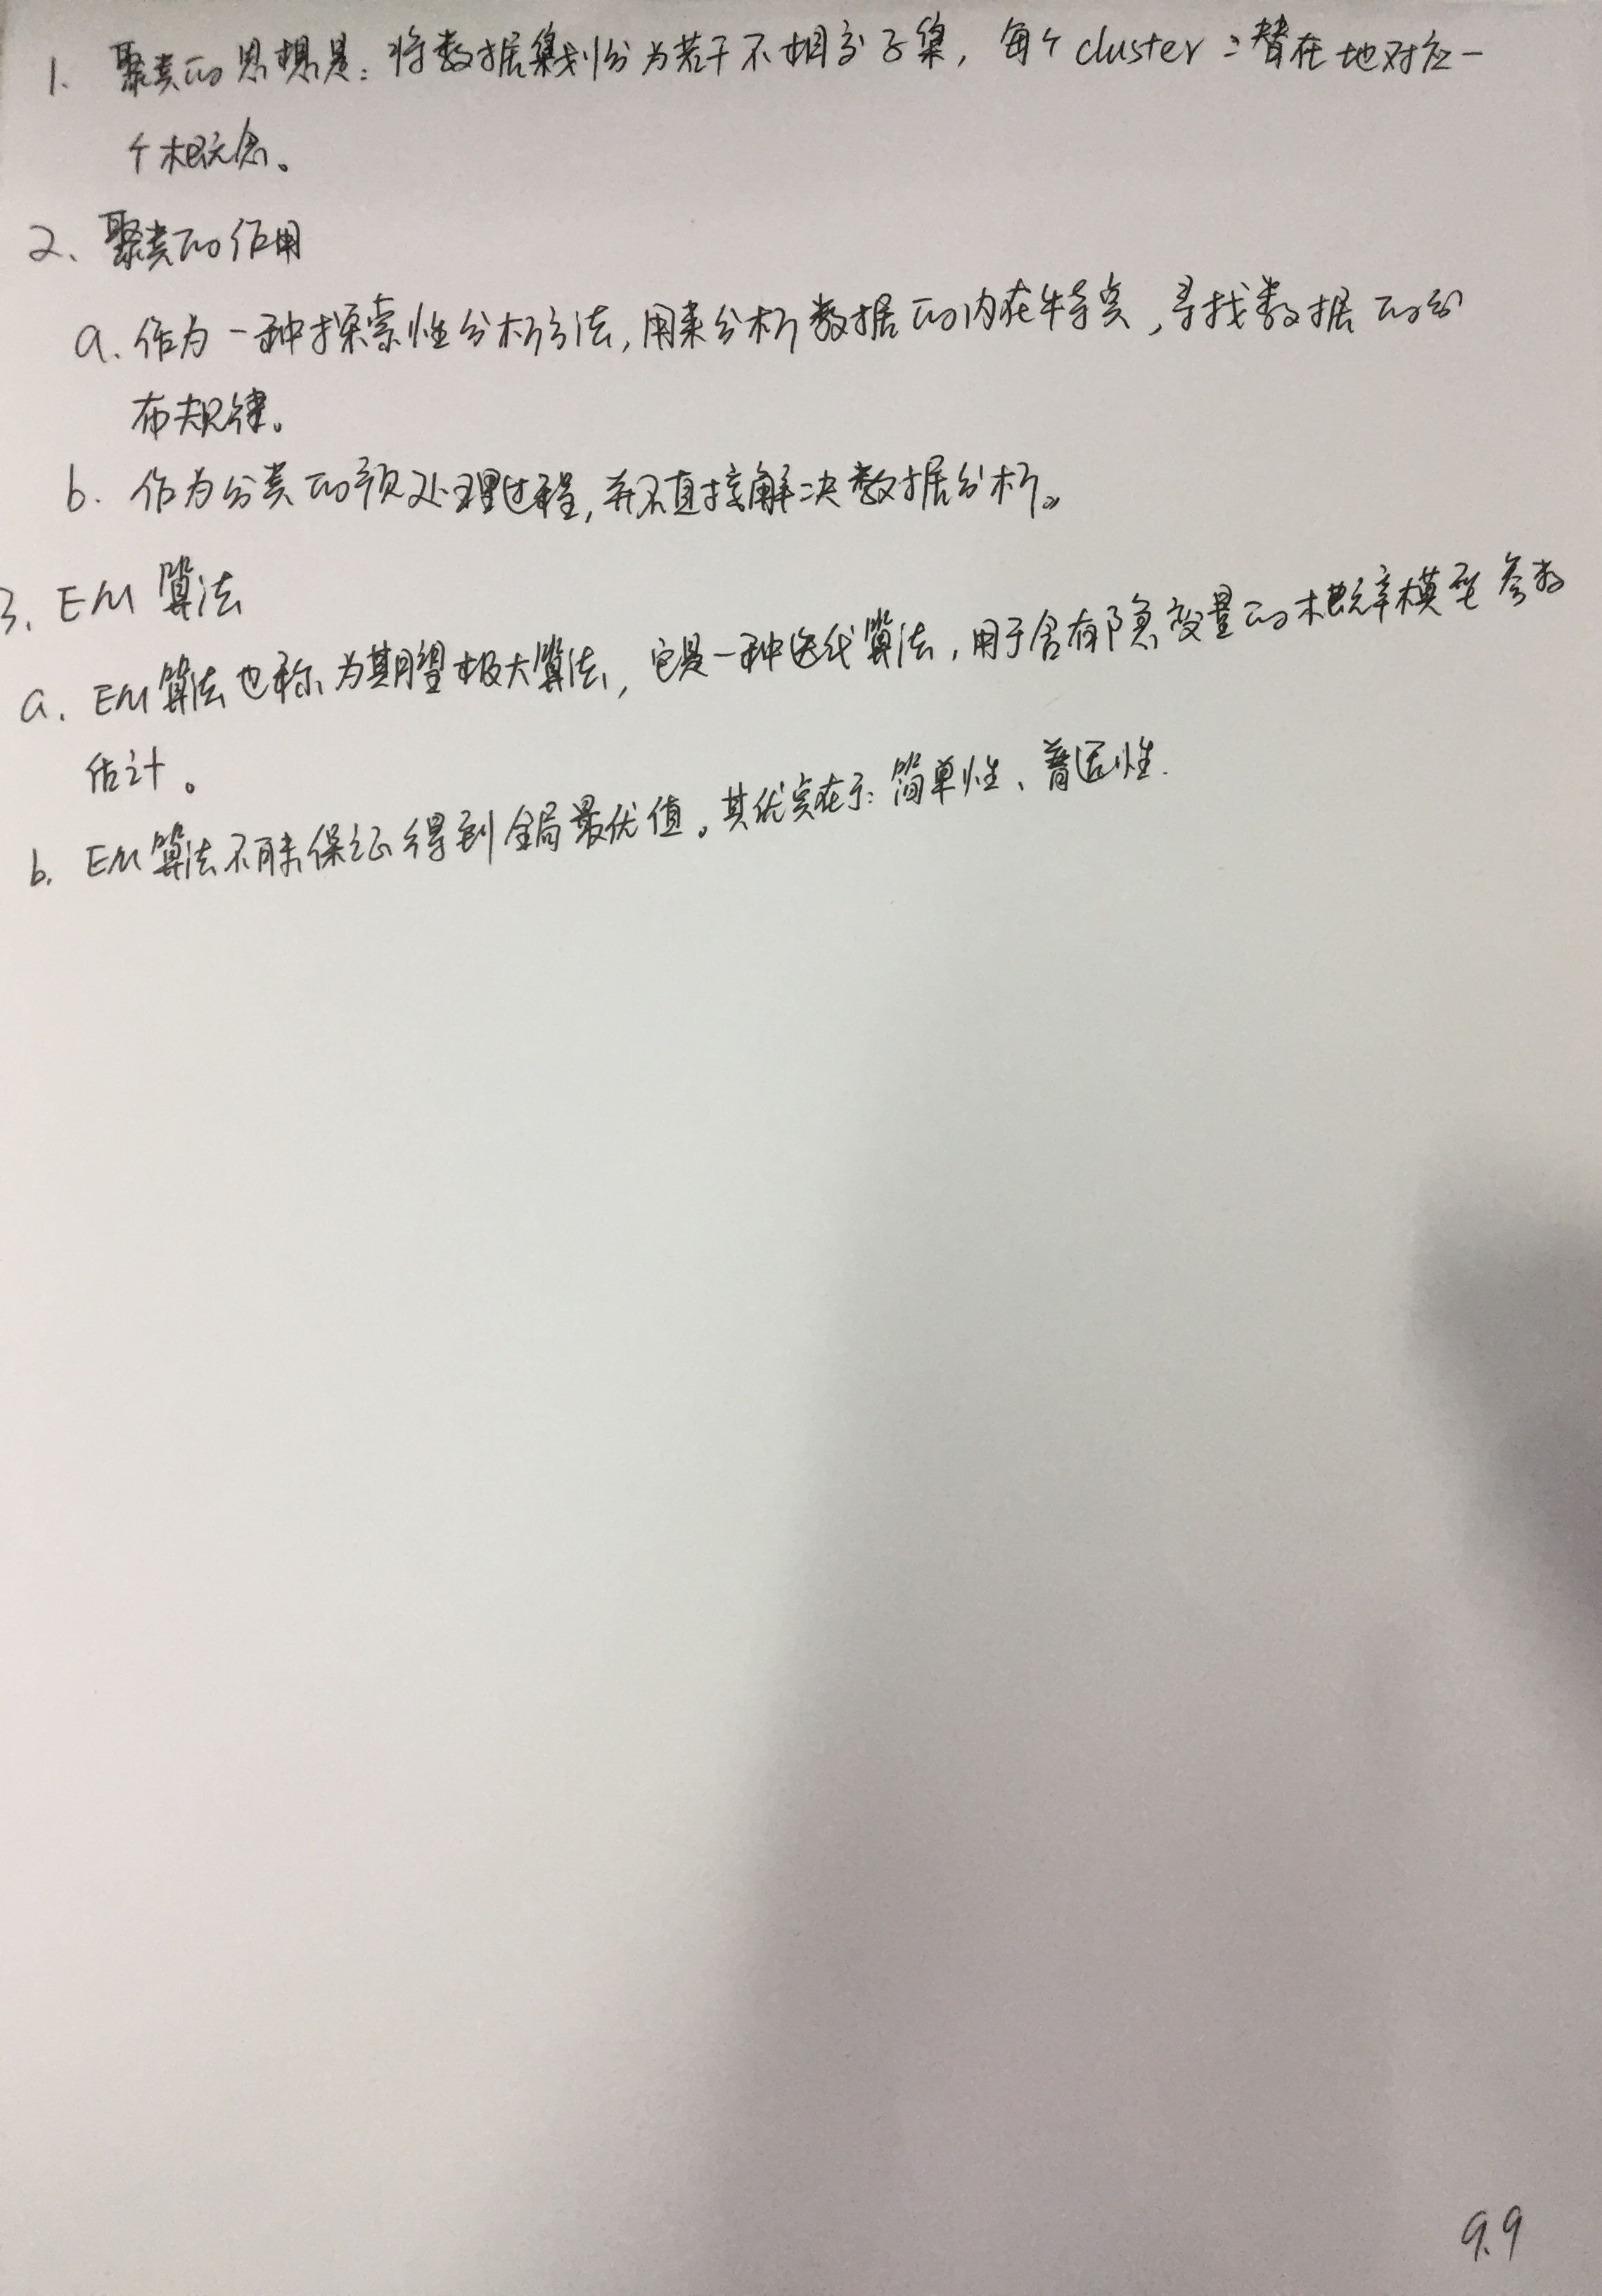 1. 聚类的思想是：将数据集划分为若干不相交子集，每个cluster潜在地对应一
个概念。
2、聚类的作用
a. 作为一种探索性分析方法，用来分析数据的内在特点，寻找数据的分
布规律。
b. 作为分类的预处理过程，并不直接解决数据分析。
3、EM 算法
a. EM算法也称为期望极大算法，它是一种迭代算法，用于含有隐变量的概率模型参数
估计。
b. EM算法不能保证得到全局最优值。其优点在于：简单性、普适性.
9.9